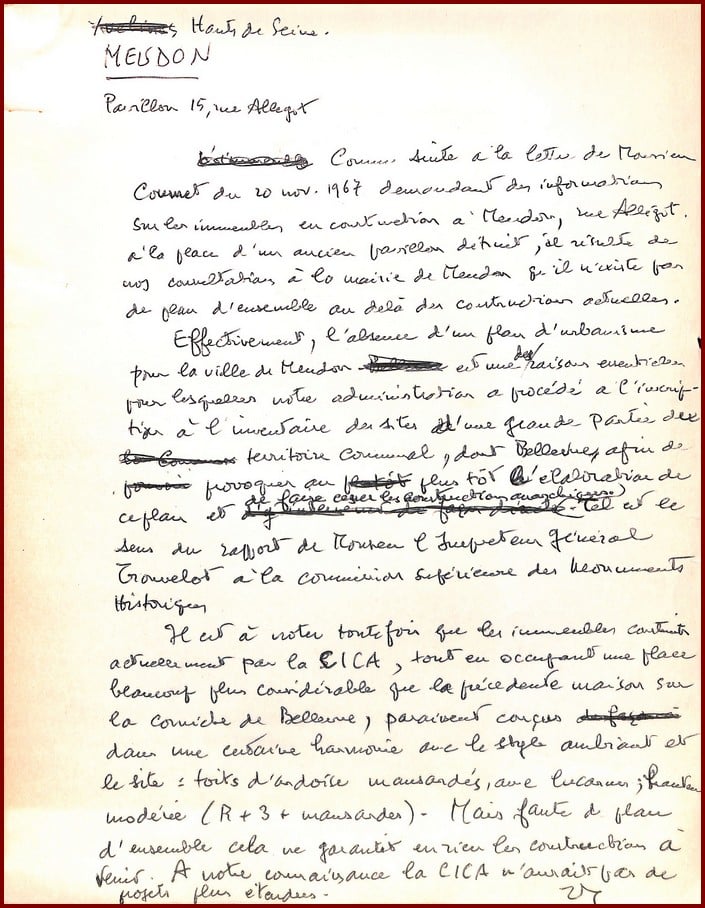 Hauts de Seine.
MEUDON
Pavillon 15, rue Allégot
Comme suite à la lettre de Monsieur
du 20 nov. 1967 demandant des informations
sur les immeubles en construction à Meudon, rue Allégot.
à la place d'un ancien pavillon détruit, il résulte de
nos consultations à la mairie de Meudon qu'il n'existe pas
de plan d'ensemble au delà des constructions actuelles.
Effectivement, l'absence d'un plan d'urbanisme
pour la ville de Meudon est une des raisons essentielles
pour lesquelles notre administration a procédé à l'inscrip-
tion à l'inventaire des sites d'une grande partie de
territoire communal, dont Bellevue, afin de
provoquer au plus tôt l'élaboration de
de faire cesser les constructions anarchiques.
ce plan et Tel est le
sens du rapport de Monsieur l'Inspecteur Général
Trouvelot à la commission supérieure des Monuments
Historiques
Il est à noter toutefois que les immeubles construits
actuellement par la CICA, tout en occupant une place
beaucoup plus considérable que la précédente maison sur
la corniche de Bellevue, paraissent conçus
dans une certaine harmonie avec le style ambiant et
le site : toits d'ardoise mansardés, avec lucarnes ; hauteur
modérée (R + 3 + mansardes) - Mais faute de plan
d'ensemble cela ne garantit en rien les constructions à
venir. A notre connaissance la CICA n'aurait pas de
projets plus étendus -